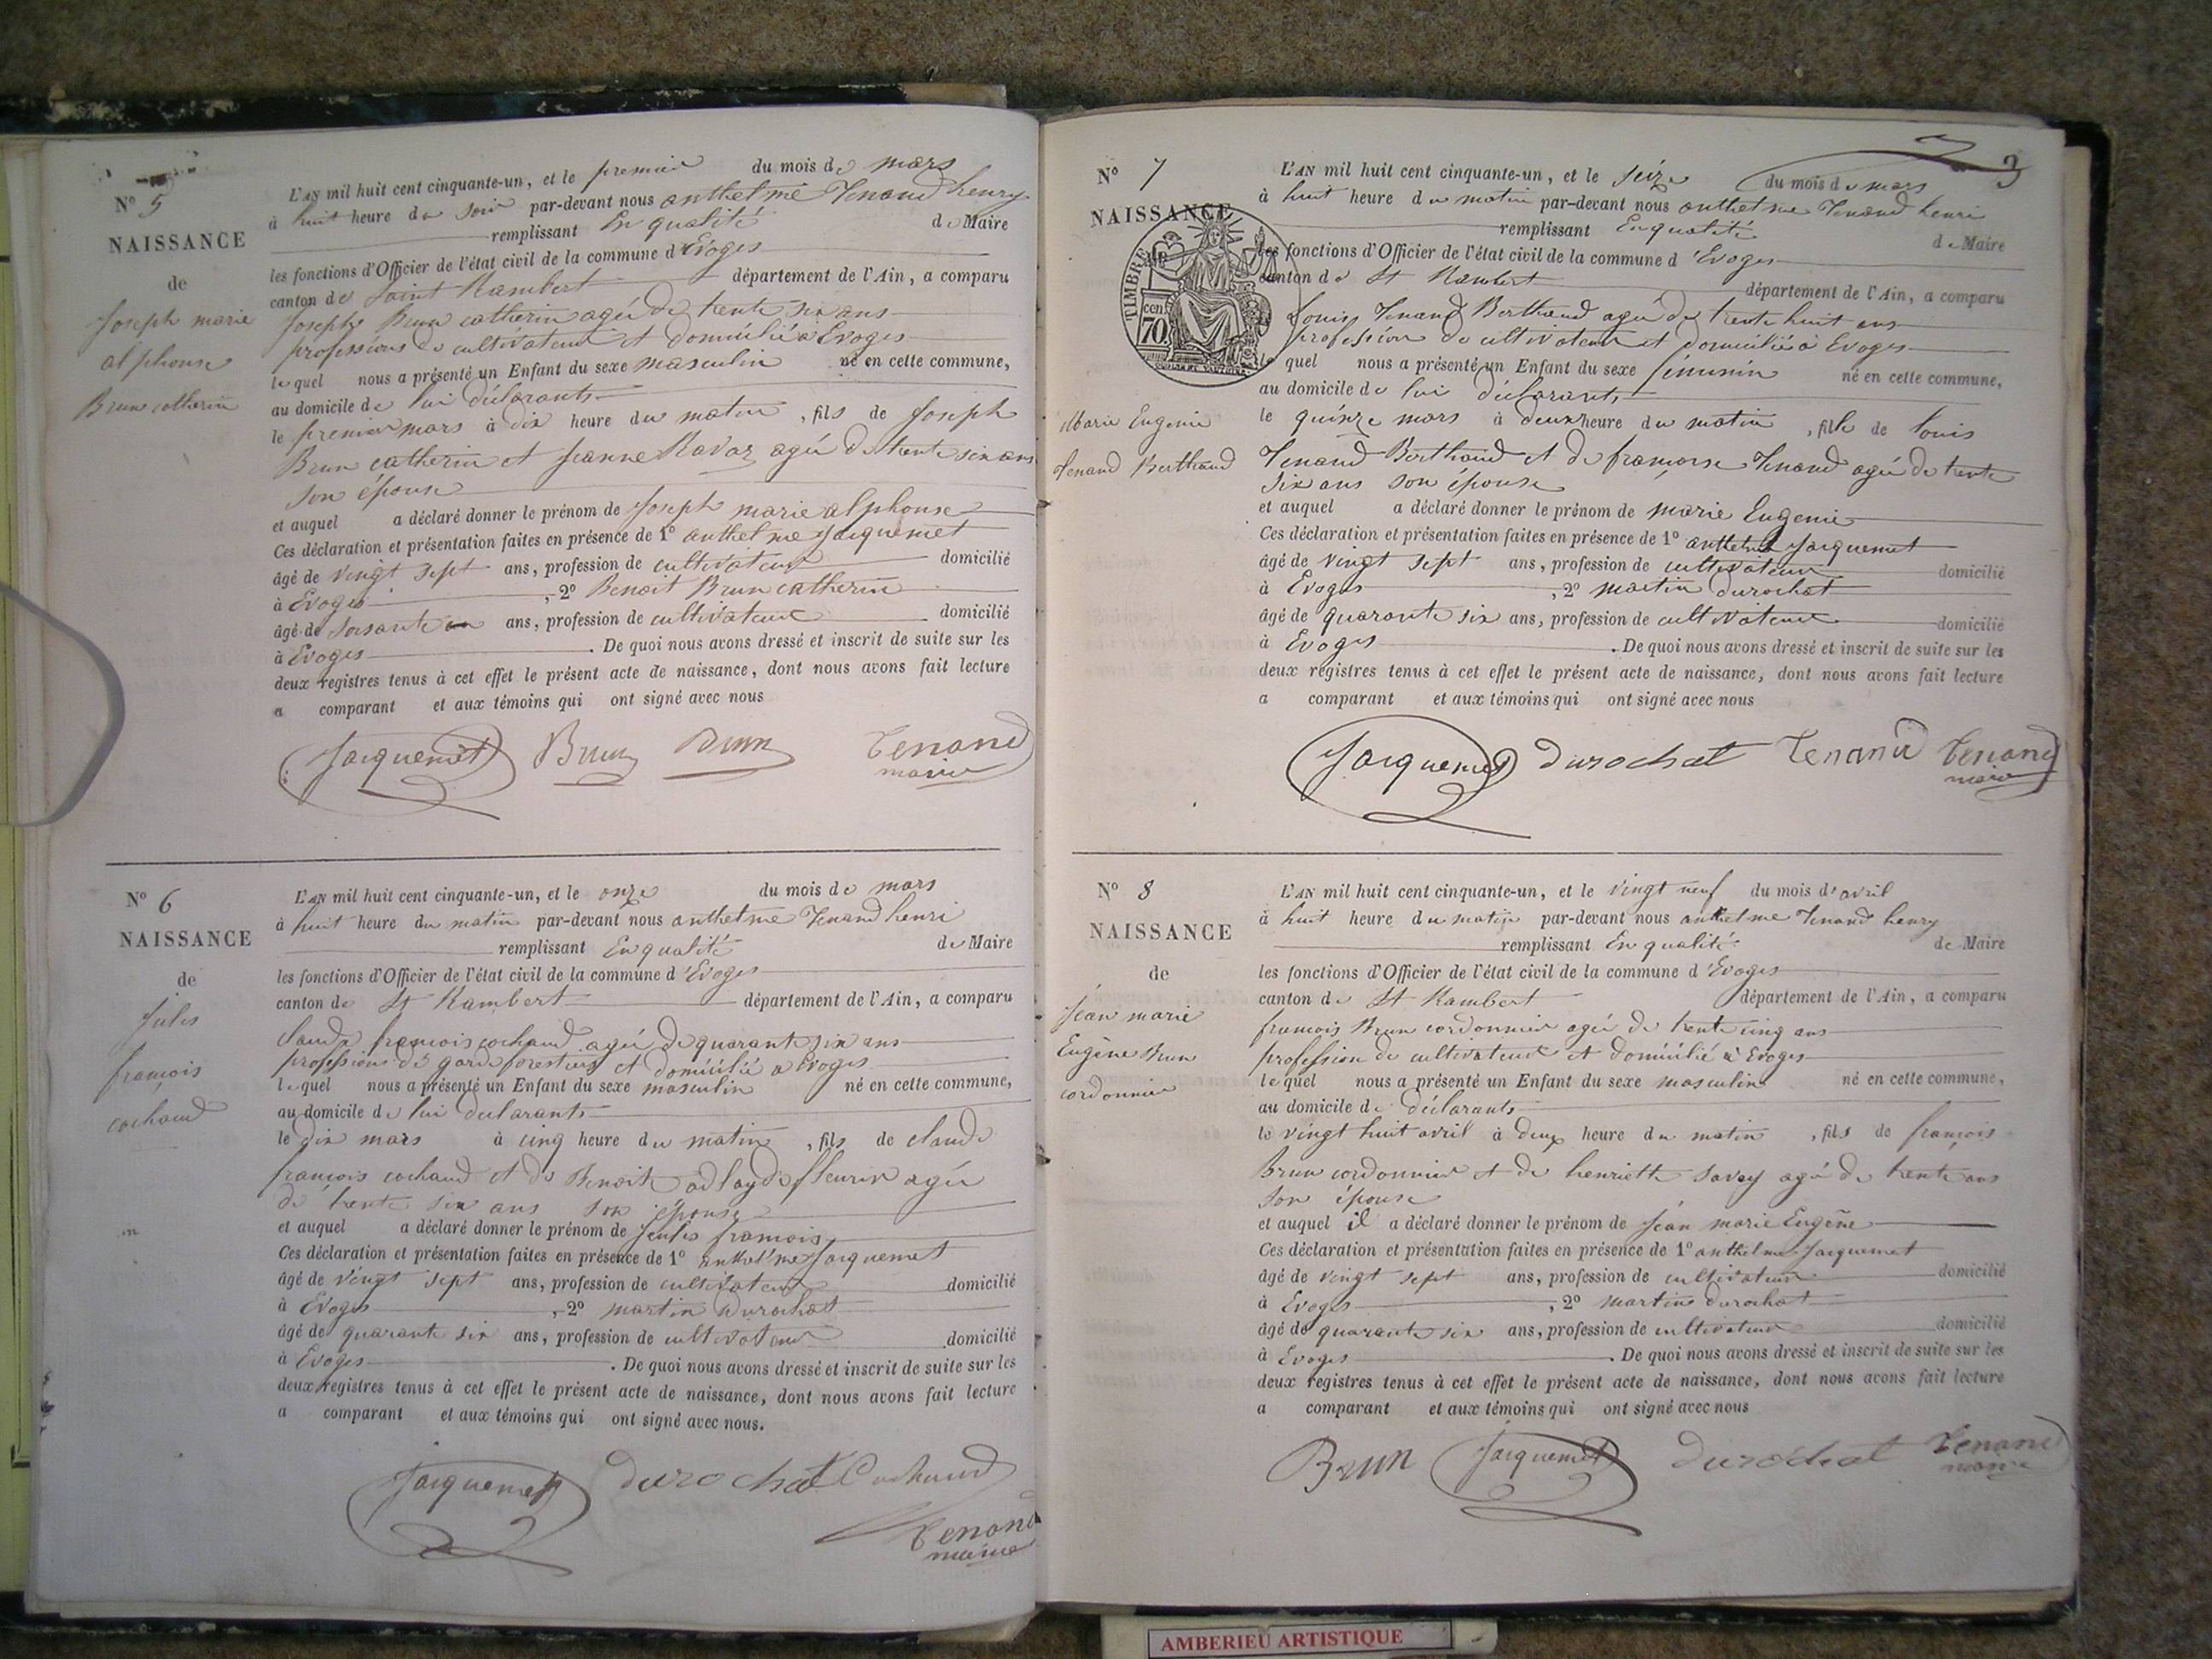 N° 5
NAISSANCE
de
Joseph marie
alphonse
Brun catherin
L'AN mil huit cent cinquante-un, et le premier du mois de mars
à huit heure du soir par-devant nous anthelme Tenand henry
remplissant En qualité de Maire
les fonctions d'Officier de l'état civil de la commune d'Evoges
canton de Saint Rambert département de l'Ain, a comparu
Joseph Brun catherin agée de trente six ans
professions de cultivateur et domicilié a Evoges
lequel nous a présenté un Enfant du sexe masculin né en cette commune,
au domicile de lui déclarants
le premier mars à dix heure du matin, fils de Joseph
Brun catherin et Jeanne Ravaz agée de trente six ans
son épouse
et auquel a déclaré donner le prénom de Joseph marie alphonse
Ces déclaration et présentation faites en présence de 1° anthelme Jacquemet
âgé de vingt sept ans, profession de cultivateur domicilié
à Evoges, 2° Benoit Brun catherin
âgé de soisante ans, profession de cultivateur domicilié
à Evoges. De quoi nous avons dressé et inscrit de suite sur les
deux registres tenus à cet effet le présent acte de naissance, dont nous avons fait lecture
a comparant et aux témoins qui ont signé avec nous
Jacquemet Brun Brun Tenand
maire
N° 6
NAISSANCE
de
Jules
francois
cochaud
L'AN mil huit cent cinquante-un, et le onze du mois de mars
à huit heure du matin par-devant nous anthelme Tenand henri
remplissant En qualité de Maire
les fonctions d'Officier de l'état civil de la commune d'Evoges
canton de St Rambert département de l'Ain, a comparu
claude francois cochaud agée de quarante six ans
professions de garde forestiers et domicilié a Evoges
lequel nous a présenté un Enfant du sexe masculin né en cette commune,
au domicile de lui declarants
le dix mars à cinq heure du matin, fils de claude
francois cochaud et de Benoite fleurin agée
de trente six ans son épouse
et auquel a déclaré donner le prénom de Jules francois
Ces déclaration et présentation faites en présence de 1° anthelme Jacquemet
âgé de vingt sept ans, profession de cultivateur domicilié
à Evoges, 2° martin durochat
âgé de quarante six ans, profession de cultivateur domicilié
à Evoges. De quoi nous avons dressé et inscrit de suite sur les
deux registres tenus à cet effet le présent acte de naissance, dont nous avons fait lecture
a comparant et aux témoins qui ont signé avec nous.
Jacquemet durochat Cochaud
Tenand
maire
3
N° 7
NAISSANCE
TIMBRE
70 cen
Marie Eugenie
Tenand Berthaud
L'AN mil huit cent cinquante-un, et le seize du mois de mars
à huit heure du matin par-devant nous anthelme Tenand henri
remplissant En qualité de Maire
les fonctions d'Officier de l'état civil de la commune d'Evoges
canton de St Rambert département de l'Ain, a comparu
Louis Tenand Berthaud agée de trente huit ans
profession de cultivateur et domicilié à Evoges
lequel nous a présenté un Enfant du sexe féminin né en cette commune,
au domicile de lui déclarants
le quinze mars à deux heure du matin, fille de louis
Tenand Berthaud et de francoise Tenand agée de trente
six ans son épouse
et auquel a déclaré donner le prénom de marie Eugenie
Ces déclaration et présentation faites en présence de 1° anthelme Jacquemet
âgé de vingt sept ans, profession de cultivateur domicilié
à Evoges, 2° martin durochat
âgé de quarante six ans, profession de cultivateur domicilié
à Evoges. De quoi nous avons dressé et inscrit de suite sur les
deux registres tenus à cet effet le présent acte de naissance, dont nous avons fait lecture
a comparant et aux témoins qui ont signé avec nous
Jacquemet durochat Tenand Tenand
maire
N° 8
NAISSANCE
de
Jean marie
Eugène Brun
cordonnier
L'AN mil huit cent cinquante-un, et le vingt neuf du mois d'avril
à huit heure du matin par-devant nous anthelme Tenand henry
remplissant En qualité de Maire
les fonctions d'Officier de l'état civil de la commune d'Evoges
canton de St Rambert département de l'Ain, a comparu
francois Brun cordonnier agée de trente cinq ans
profession de cultivateur et domicilié à Evoges
lequel nous a présenté un Enfant du sexe masculin né en cette commune,
au domicile de déclarants
le vingt huit avril à deux heure du matin, fils de francois
Brun cordonnier et de henriette Savey agé de trente ans
son épouse
et auquel il a déclaré donner le prénom de Jean marie Eugène
Ces déclaration et présentation faites en présence de 1° anthelme Jacquemet
âgé de vingt sept ans, profession de cultivateur domicilié
à Evoges, 2° martin durochat
âgé de quarante six ans, profession de cultivateur domicilié
à Evoges. De quoi nous avons dressé et inscrit de suite sur les
deux registres tenus à cet effet le présent acte de naissance, dont nous avons fait lecture
a comparant et aux témoins qui ont signé avec nous
Brun Jacquemet durochat Tenand
maire
AMBERIEU ARTISTIQUE